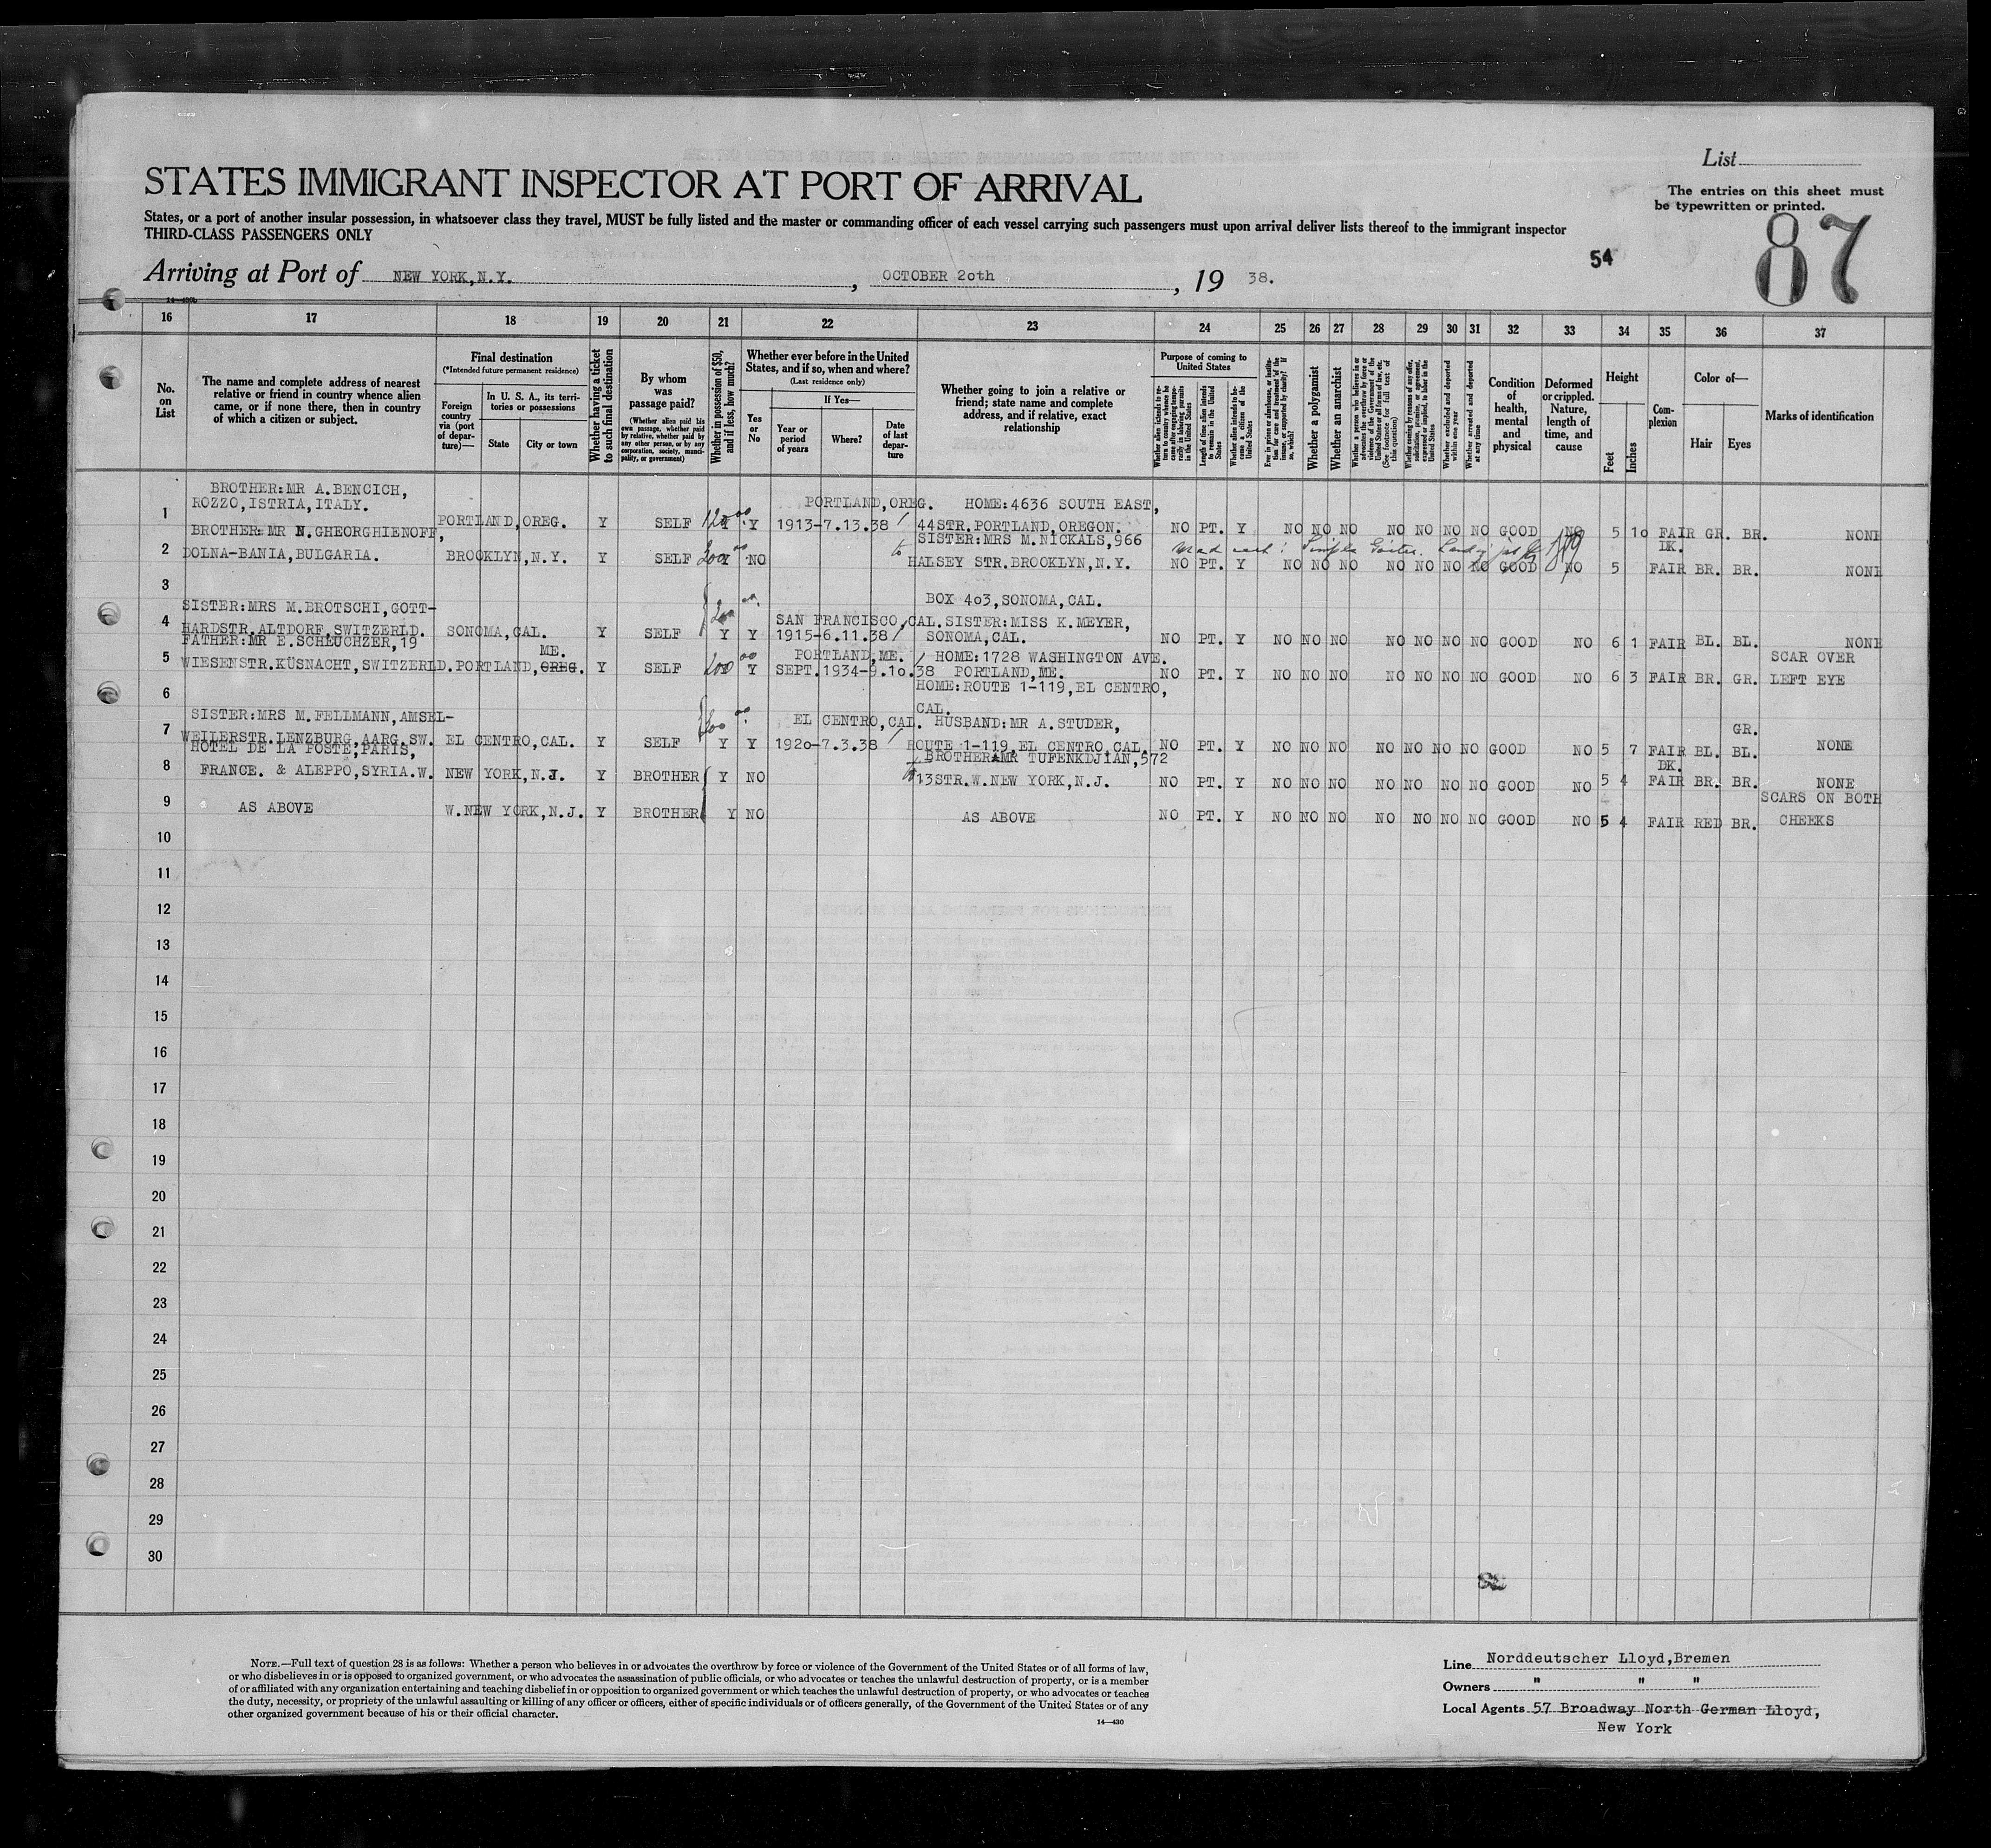 List
STATES IMMIGRANT INSPECTOR AT PORT OF ARRIVAL
The entries on this sheet must
be typewritten or printed.
States, or a port of another insular possession, in whatsoever class they travel, MUST be fully listed and the master or commanding officer of each vessel carrying such passengers must upon arrival deliver lists thereof to the immigrant inspector
THIRD-CLASS PASSENGERS ONLY
87
54
Arriving at Port of NEW YORK,N.Y. , OCTOBER 2oth , 19 38.
16 17 18 19 20 21 22 23 24 25 26 27 28 29 30 31 32 33 34 35 36 37
No. on List
The name and complete address of nearest relative or friend in country whence alien came, or if none there, then in country of which a citizen or subject.
Final destination
(*Intended future permanent residence)
Foreign country via (port of departure)—
In U. S. A., its territories or possessions
State
City or town
Whether having a ticket to such final destination
By whom was passage paid?
(Whether alien paid his own passage, whether paid by relative, whether paid by any other person, or by any corporation, society, municipality, or government)
Whether in possession of $50, and if less, how much?
Whether ever before in the United States, and if so, when and where?
(Last residence only)
Yes or No
If Yes—
Year or period of years
Where?
Date of last departure
Whether going to join a relative or friend; state name and complete address, and if relative, exact relationship
Purpose of coming to United States
Whether alien intends to return to country whence he came after engaging temporarily in laboring pursuits in the United States
Length of time alien intends to remain in the United States
Whether alien intends to become a citizen of the United States
Ever in prison or almshouse, or institution for care and treatment of the insane, or supported by charity? If so, which?
Whether a polygamist
Whether an anarchist
Whether a person who believes in or advocates the overthrow by force or violence of the Government of the United States or all forms of law, etc. (See footnote for full text of this question)
Whether coming by reasons of any offer, solicitation, promise, or agreement, expressed or implied, to labor in the United States
Whether excluded and deported within one year
Whether arrested and deported at any time
Condition of health, mental and physical
Deformed or crippled. Nature, length of time, and cause
Height
Feet
Inches
Complexion
Color of—
Hair
Eyes
Marks of identification
BROTHER:MR A.BENCICH,
1 ROZZO,ISTRIA,ITALY. PORTLAND,OREG. Y SELF 120.00 Y PORTLAND,OREG. 1913-7.13.38 HOME:4636 SOUTH EAST,
44STR.PORTLAND,OREGON. NO PT. Y NO NO NO NO NO NO NO GOOD NO 5 1o FAIR GR. BR. NONE
BROTHER:MR N.GHEORGHIENOFF,
2 DOLNA-BANIA,BULGARIA. BROOKLYN,N.Y. Y SELF Y NO SISTER:MRS M.NICKALS,966
HALSEY STR.BROOKLYN,N.Y. NO PT. Y NO NO NO NO NO NO NO GOOD NO 5 DK. FAIR BR. BR. NONE
3
SISTER:MRS M.BROTSCHI,GOTT-
4 HARDSTR.ALTDORF,SWITZERLD. SONOMA,CAL. Y SELF Y Y SAN FRANCISCO,CAL. 1915-6.11.38 BOX 4o3,SONOMA,CAL.
SISTER:MISS K.MEYER,
SONOMA,CAL. NO PT. Y NO NO NO NO NO NO NO GOOD NO 6 1 FAIR BL. BL. NONE
FATHER:MR E.SCHEUCHZER,19
5 WIESENSTR.KÜSNACHT,SWITZERLD. PORTLAND,OREG. ME. Y SELF Y PORTLAND,ME. SEPT.1934-9.1o.38 HOME:1728 WASHINGTON AVE.
PORTLAND,ME. NO PT. Y NO NO NO NO NO NO NO GOOD NO 6 3 FAIR BR. GR. SCAR OVER
LEFT EYE
6 HOME:ROUTE 1-119,EL CENTRO,
CAL.
SISTER:MRS M.FELLMANN,AMSEL-
7 WEILERSTR.LENZBURG,AARG.SW. EL CENTRO,CAL. Y SELF Y Y EL CENTRO,CAL. 192o-7.3.38 HUSBAND:MR A.STUDER,
ROUTE 1-119,EL CENTRO,CAL. NO PT. Y NO NO NO NO NO NO NO GOOD NO 5 7 FAIR BL. GR. BL. NONE
HOTEL DE LA POSTE,PARIS,
8 FRANCE. & ALEPPO,SYRIA. W. NEW YORK,N.J. Y BROTHER Y NO BROTHER:MR TUFENKDJIAN,572
13STR.W.NEW YORK,N.J. NO PT. Y NO NO NO NO NO NO NO GOOD NO 5 4 DK. FAIR BR. BR. NONE
9 AS ABOVE W.NEW YORK,N.J. Y BROTHER Y NO AS ABOVE NO PT. Y NO NO NO NO NO NO NO GOOD NO 5 4 FAIR RED BR. SCARS ON BOTH
CHEEKS
10
11
12
13
14
15
16
17
18
19
20
21
22
23
24
25
26
27
28
29
30
NOTE.—Full text of question 28 is as follows: Whether a person who believes in or advocates the overthrow by force or violence of the Government of the United States or of all forms of law,
or who disbelieves in or is opposed to organized government, or who advocates the assassination of public officials, or who advocates or teaches the unlawful destruction of property, or is a member
of or affiliated with any organization entertaining and teaching disbelief in or opposition to organized government or which teaches the unlawful destruction of property, or who advocates or teaches
the duty, necessity, or propriety of the unlawful assaulting or killing of any officer or officers, either of specific individuals or of officers generally, of the Government of the United States or of any
other organized government because of his or their official character.
14—430
Line Norddeutscher Lloyd,Bremen
Owners " " "
Local Agents 57 Broadway North German Lloyd,
New York